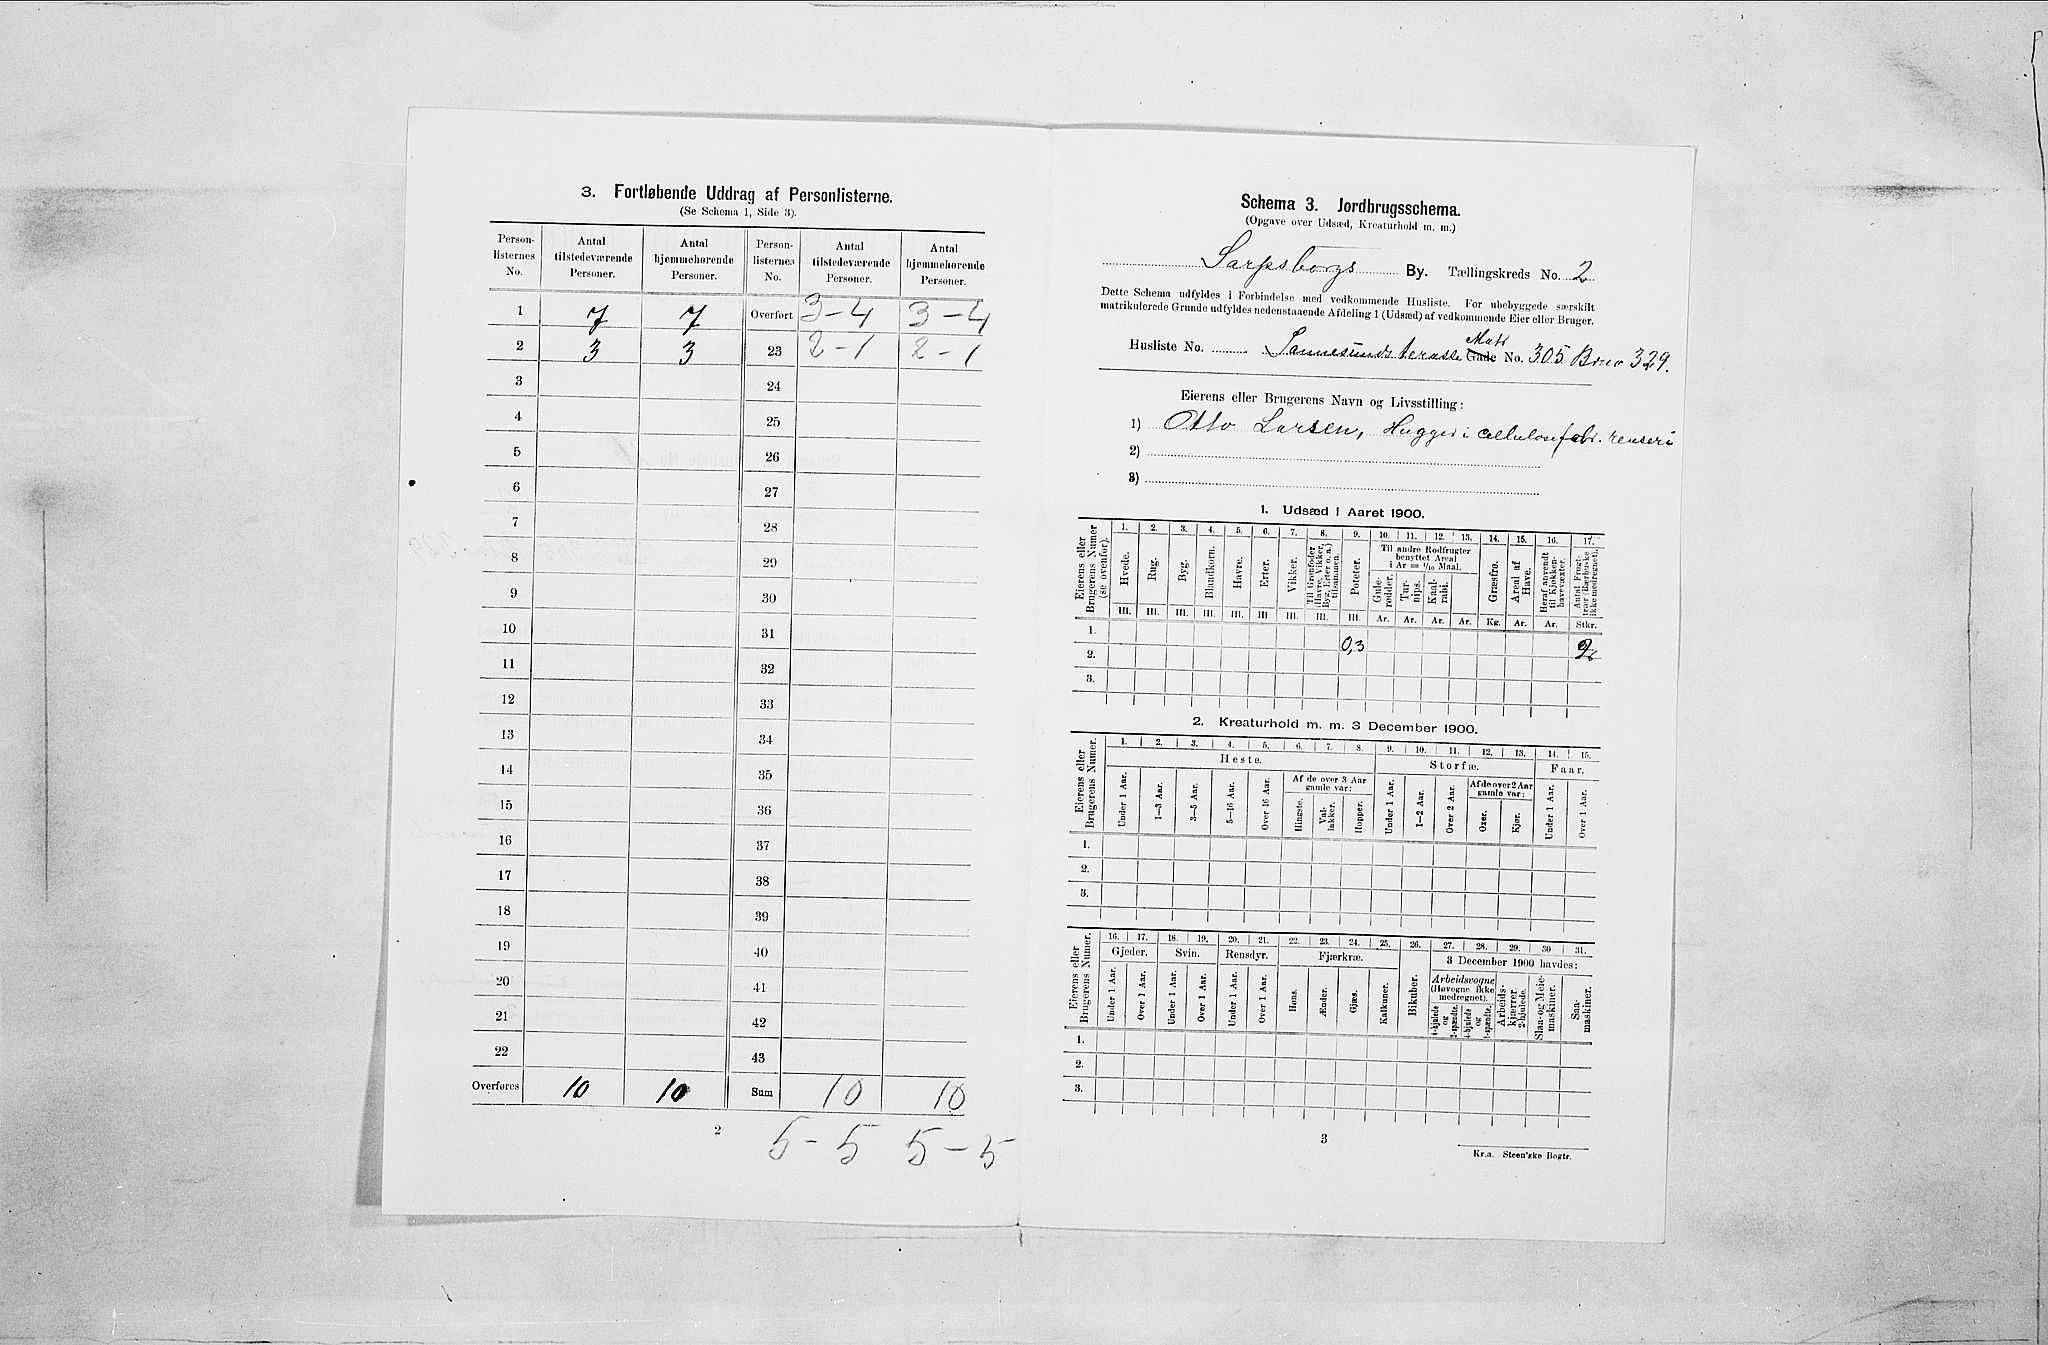 3. Fortløbende Uddrag af Personlisterne.
(Se Schema 1, Side 3).
Person-listernes No. | Antal tilstedeværende Personer. | Antal hjemmehørende Personer. | Person-listernes No. | Antal tilstedeværende Personer. | Antal hjemmehørende Personer.
1 | 7 | 7 | Overført | 3-4 | 3-4
2 | 3 | 3 | 23 | 2-1 | 2-1
3 | 24
4 | 25
5 | 26
6 | 27
7 | 28
8 | 29
9 | 30
10 | 31
11 | 32
12 | 33
13 | 34
14 | 35
15 | 36
16 | 37
17 | 38
18 | 39
19 | 40
20 | 41
21 | 42
22 | 43
Overføres | 10 | 10 | Sum | 10 | 10
2 5-5 5-5
Schema 3. Jordbrugsschema.
(Opgave over Udsæd, Kreaturhold m. m.)
Sarpsborgs By. Tællingskreds No. 2
Dette Schema udfyldes i Forbindelse med vedkommende Husliste. For ubebyggede særskilt
matrikulerede Grunde udfyldes nedenstaaende Afdeling 1 (Udsæd) af vedkommende Eier eller Bruger.
Matr
Husliste No. Sannesunds terasse Gade No. 305 Bno 329.
Eierens eller Brugerens Navn og Livsstilling:
1) Otto Larsen, Hugger i cellulosefabr. renseri
2)
3)
1. Udsæd i Aaret 1900.
Eierens eller Brugerens Numer (se ovenfor).
1. 2. 3. 4. 5. 6. 7. 8. 9. 10. 11. 12. 13. 14. 15. 16. 17.
Hvede. Rug. Byg. Blandkorn. Havre. Erter. Vikker. Til Grønfoder (Havre, Vikker, Byg, Erter o. a.) tilsammen. Poteter. Til andre Rodfrugter benyttet Areal i Ar = 1/10 Maal. Gule-rødder. Tur-nips. Kaal-rabi. Græsfrø. Areal af Have. Heraf anvendt til Kjøkken-havevæxter. Antal Frugt-trær (Bærbuske ikke medregnet).
Hl. Hl. Hl. Hl. Hl. Hl Hl. Hl. Hl. Ar. Ar. Ar. Ar. Kg. Ar. Ar. Stkr.
1. 0,3
2.
3.
2. Kreaturhold m. m. 3 December 1900.
Eierens eller Brugerens Numer.
1. 2. 3. 4. 5. 6. 7. 8. 9. 10. 11. 12. 13. 14. 15.
Heste. Storfæ. Faar.
Under 1 Aar. 1-3 Aar. 3-5 Aar. 5-16 Aar. Over 16 Aar. Af de over 3 Aar gamle var: Hingste. Val-lakker. Hopper. Under 1 Aar. 1-2 Aar. Over 2 Aar. Af de over 2 Aar gamle var: Oxer. Kjør. Under 1 Aar. Over 1 Aar.
1.
2.
3.
Eierens eller Brugerens Numer.
16. 17. 18. 19. 20. 21. 22. 23. 24. 25. 26. 27. 28. 29. 30 31.
Gjeder. Svin. Rensdyr. Fjærkræ. Bikuber. 3 December 1900 havdes:
Under 1 Aar. Over 1 Aar. Under 1 Aar. Over 1 Aar. Under 1 Aar. Over 1 Aar. Høns. Ænder. Gjæs. Kalkuner. Arbeidsvogne (Høvogne ikke medregnet). 4-hjulede og 2-spændte. 4-hjulede og 1-spændte. Arbeids-kjærrer 2-hjulede. Slaa- og Meie-maskiner. Saa-maskiner.
1.
2.
3.
3
Kr.a. Steen'ske Bogtr.